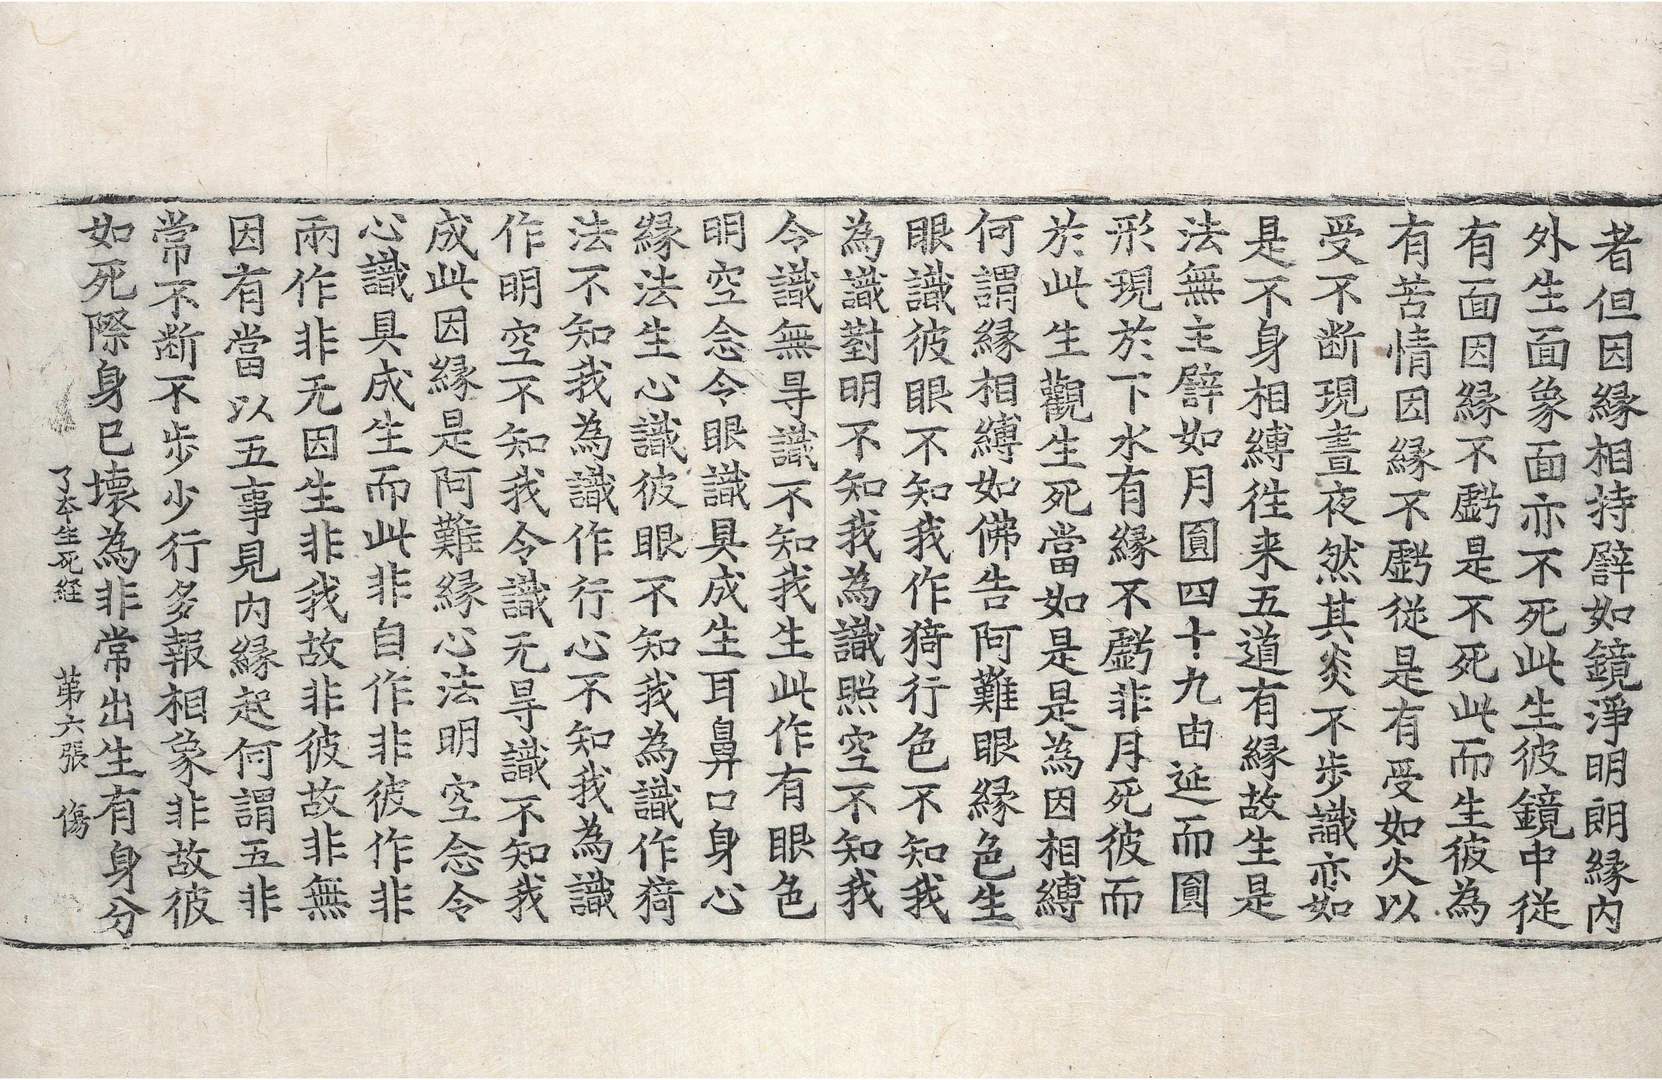 者但因縁相持譬如鏡淨明朗縁内
外生面象面亦不死此生彼鏡中從
有面因縁不虧是不死此而生彼為
有苦情因縁不虧從是有受如火以
受不断現晝夜然其炎不歩識亦如
是不身相縛徃来五道有縁故生是
法無主譬如月圓四十九由延而圓
形現於下水有縁不虧非月死彼而
於此生觀生死當如是是為因相縛
何謂縁相縛如佛告阿難眼縁色生
眼識彼眼不知我作猗行色不知我
為識對明不知我為識照空不知我
令識無㝵識不知我生此作有眼色
明空念令眼識具成生耳鼻口身心
縁法生心識彼眼不知我為識作猗
法不知我為識作行心不知我為識
作明空不知我令識无㝵識不知我
成此因縁是阿難縁心法明空念令
心識具成生而此非自作非彼作非
兩作非无因生非我故非彼故非無
因有當以五事見内縁起何謂五非
常不断不歩少行多報相象非故彼
如死際身已壊為非常出生有身分
了夲生死経 第六張 傷